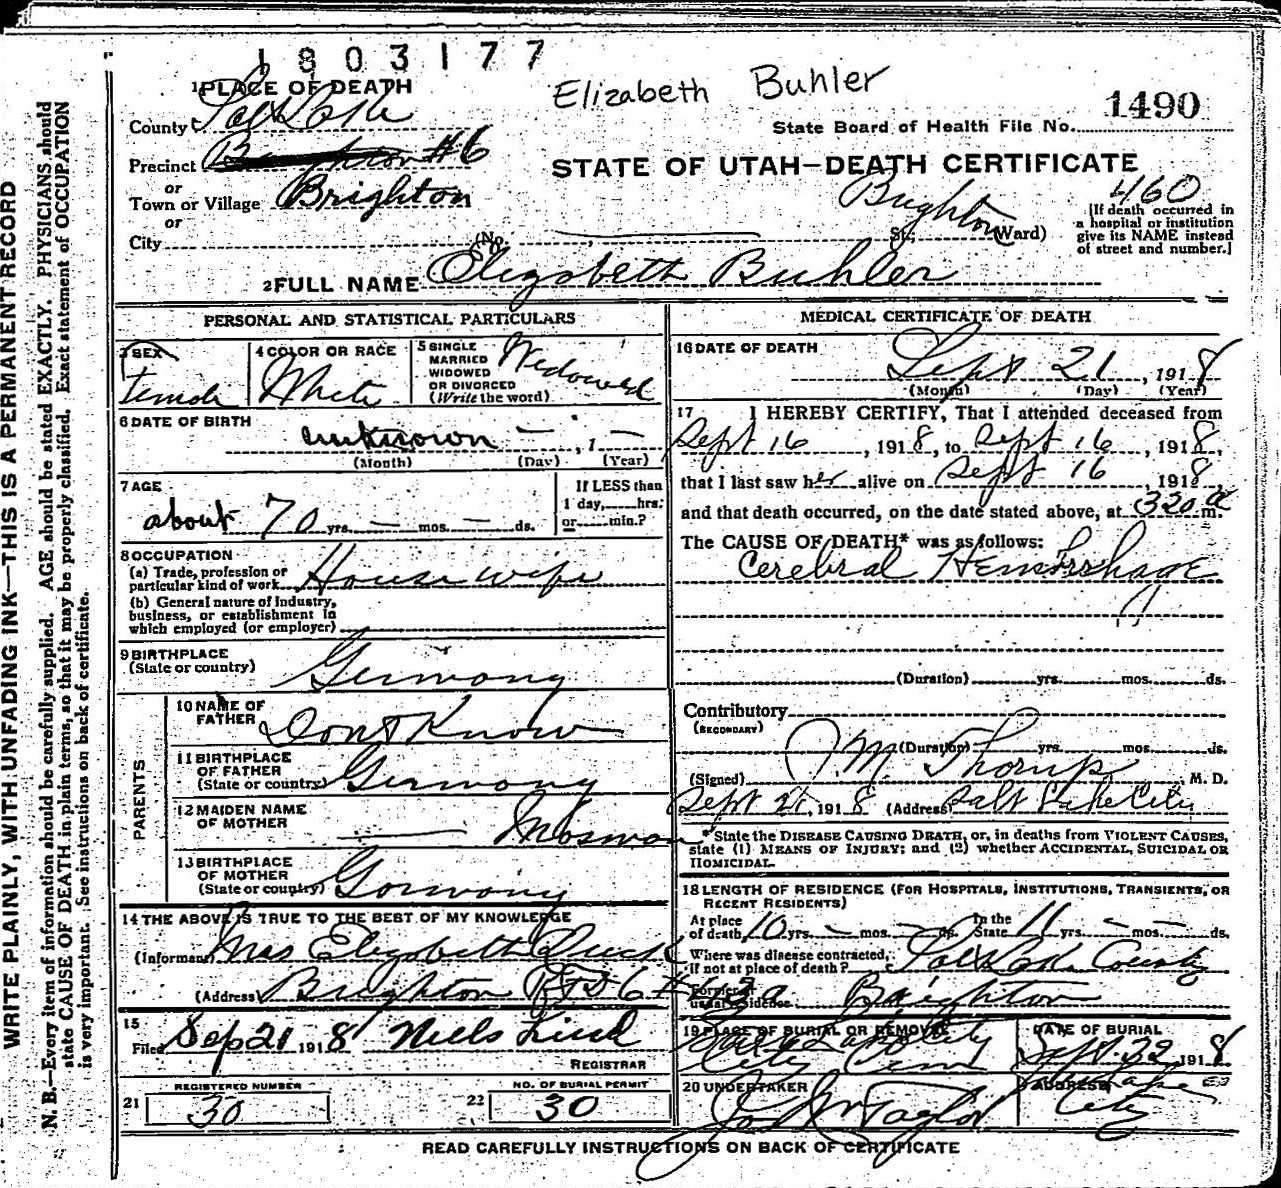 1803177
Elizabeth Buhler
1490
1 PLACE OF DEATH
County Salt Lake
State Board of Health File No.
Precinct Brighton #6
STATE OF UTAH—DEATH CERTIFICATE
or
Town or Village Brighton
or
City
Brighton
St.; Ward)
460
[If death occurred in
a hospital or institution
give its NAME instead
of street and number.]
2 FULL NAME Elizabeth Buhler
PERSONAL AND STATISTICAL PARTICULARS
3 SEX
Female
4 COLOR OR RACE
White
5 SINGLE
MARRIED
WIDOWED
OR DIVORCED
(Write the word)
Widowed
6 DATE OF BIRTH
unknown — , 1 —
(Month) (Day) (Year)
7 AGE
about 70 yrs. — mos. — ds.
If LESS than
1 day, hrs.
or min.?
8 OCCUPATION
(a) Trade, profession or
particular kind of work House wife
(b) General nature of industry,
business, or establishment in
which employed (or employer)
9 BIRTHPLACE
(State or country) Germany
PARENTS
10 NAME OF
FATHER Dont Know
11 BIRTHPLACE
OF FATHER
(State or country) Germany
12 MAIDEN NAME
OF MOTHER
13 BIRTHPLACE
OF MOTHER
(State or country) Germany
14 THE ABOVE IS TRUE TO THE BEST OF MY KNOWLEDGE
(Informant) Mrs Elizabeth
(Address) Brighton RFD 6
15
Filed Sep 21 1918 Niels Lind
REGISTRAR
21 REGISTERED NUMBER
30
22 NO. OF BURIAL PERMIT
30
MEDICAL CERTIFICATE OF DEATH
16 DATE OF DEATH
Sept 21, 1918
(Month) (Day) (Year)
17 I HEREBY CERTIFY, That I attended deceased from
Sept 16, 1918, to Sept 16, 1918,
that I last saw her alive on Sept 16, 1918,
and that death occurred, on the date stated above, at 320 a m.
The CAUSE OF DEATH* was as follows:
Cerebral Hemorrhage
(Duration) yrs. mos. ds.
Contributory
(SECONDARY)
(Duration) yrs. mos. ds.
(Signed) J.M. Thorup, M. D.
Sept 21, 1918 (Address) Salt Lake City
*State the DISEASE CAUSING DEATH, or, in deaths from VIOLENT CAUSES,
state (1) MEANS OF INJURY; and (2) whether ACCIDENTAL, SUICIDAL OR
HOMICIDAL.
18 LENGTH OF RESIDENCE (FOR HOSPITALS, INSTITUTIONS, TRANSIENTS, OR
RECENT RESIDENTS)
At place
of death 10 yrs. — mos. — ds.
In the
State 11 yrs. — mos. — ds.
Where was disease contracted,
if not at place of death? Salt Lake County
Former or
usual residence Brighton
19 PLACE OF BURIAL OR REMOVAL
Salt Lake City
City Cem
DATE OF BURIAL
Sept. 22 1918
20 UNDERTAKER
Jos Wm Taylor
ADDRESS
City
READ CAREFULLY INSTRUCTIONS ON BACK OF CERTIFICATE
WRITE PLAINLY, WITH UNFADING INK—THIS IS A PERMANENT RECORD
N. B.—Every item of information should be carefully supplied. AGE should be stated EXACTLY. PHYSICIANS should
state CAUSE OF DEATH in plain terms, so that it may be properly classified. Exact statement of OCCUPATION
is very important. See instructions on back of certificate.